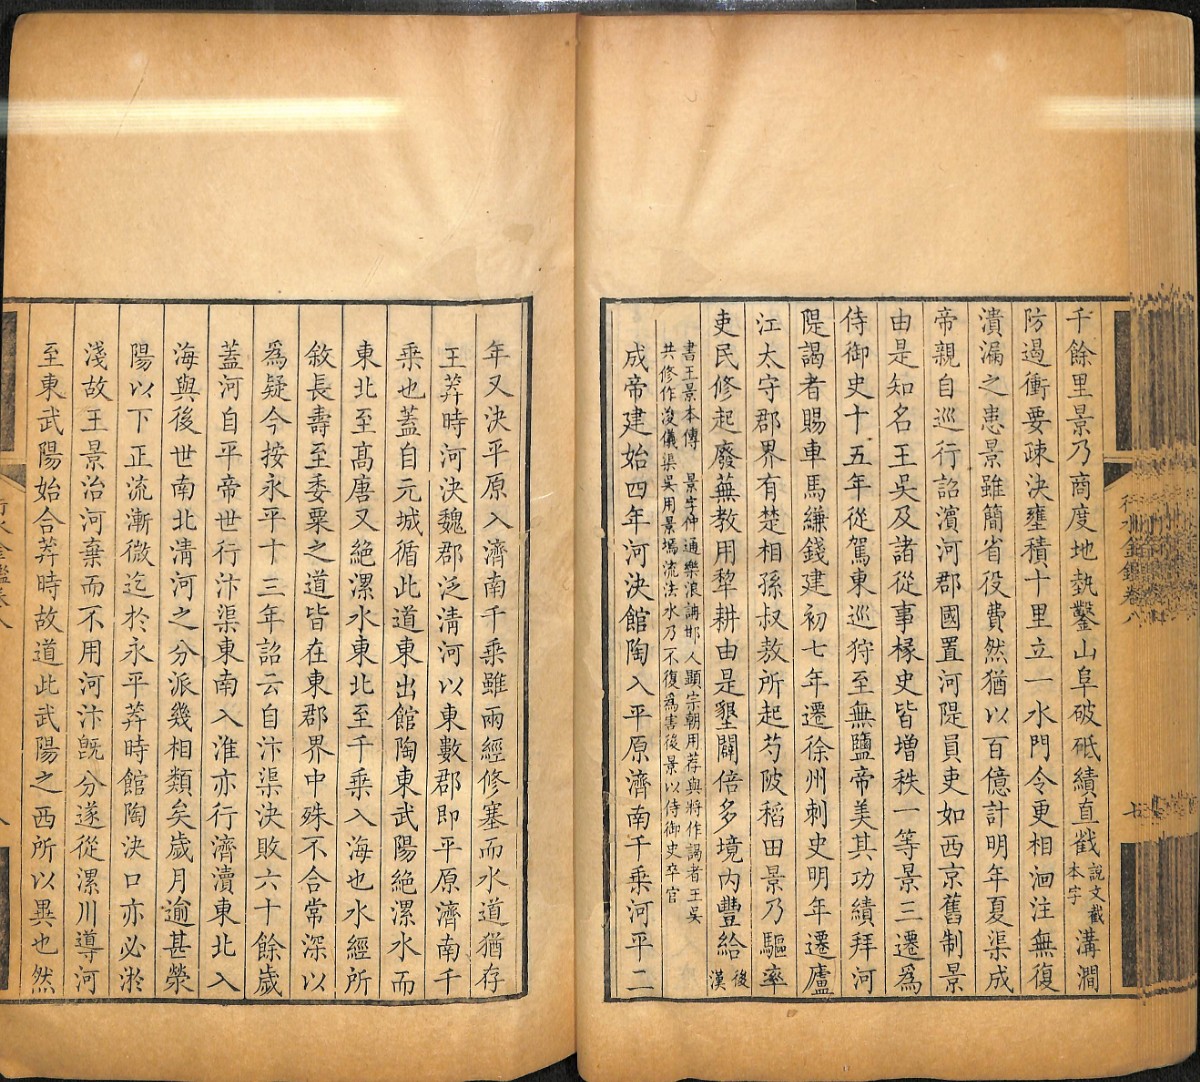 千餘里景乃商度地埶鑿山阜破砥績直戳說文截本字溝澗
防遏衝要疎決壅積十里立一水門令更相洄注無復
潰漏之患景雖簡省役費然猶以百億計明年夏渠成
帝親自巡行詔濱河郡國置河隄員吏如西京舊制景
由是知名王吳及諸從事掾史皆增秩一等景三遷為
侍御史十五年從駕東巡狩至無鹽帝美其功績拜河
隄謁者賜車馬縑錢建初七年遷徐州刺史明年遷廬
江太守郡界有楚相孫叔敖所起芍陂稻田景乃驅率
吏民修起廢蕪教用犂耕由是墾闢倍多境內豐給後漢
書王景本傳 景字仲通樂浪䛁邯人顯宗朝用荐與將作謁者王吳
共修作浚儀渠吳用景墕流法水乃不復為害後景以侍御史卒官
成帝建始四年河決館陶入平原濟南千乘河平二
行水金鑑卷八
七
年又決平原入濟南千乘雖兩經修塞而水道猶存
王莽時河決魏郡泛清河以東數郡即平原濟南千
乘也蓋自元城循此道東出館陶東武陽絕漯水而
東北至高唐又絕漯水東北至千乘入海也水經所
敘長壽至委粟之道皆在東郡界中殊不合常深以
為疑今按永平十三年詔云自汴渠決敗六十餘歲
蓋河自平帝世行汴渠東南入淮亦行濟瀆東北入
海與後世南北清河之分派幾相類矣歲月逾甚滎
陽以下正流漸微迄於永平莽時館陶決口亦必淤
淺故王景治河棄而不用河汴既分遂從漯川導河
至東武陽始合莽時故道此武陽之西所以異也然
行水金鑑卷八
八